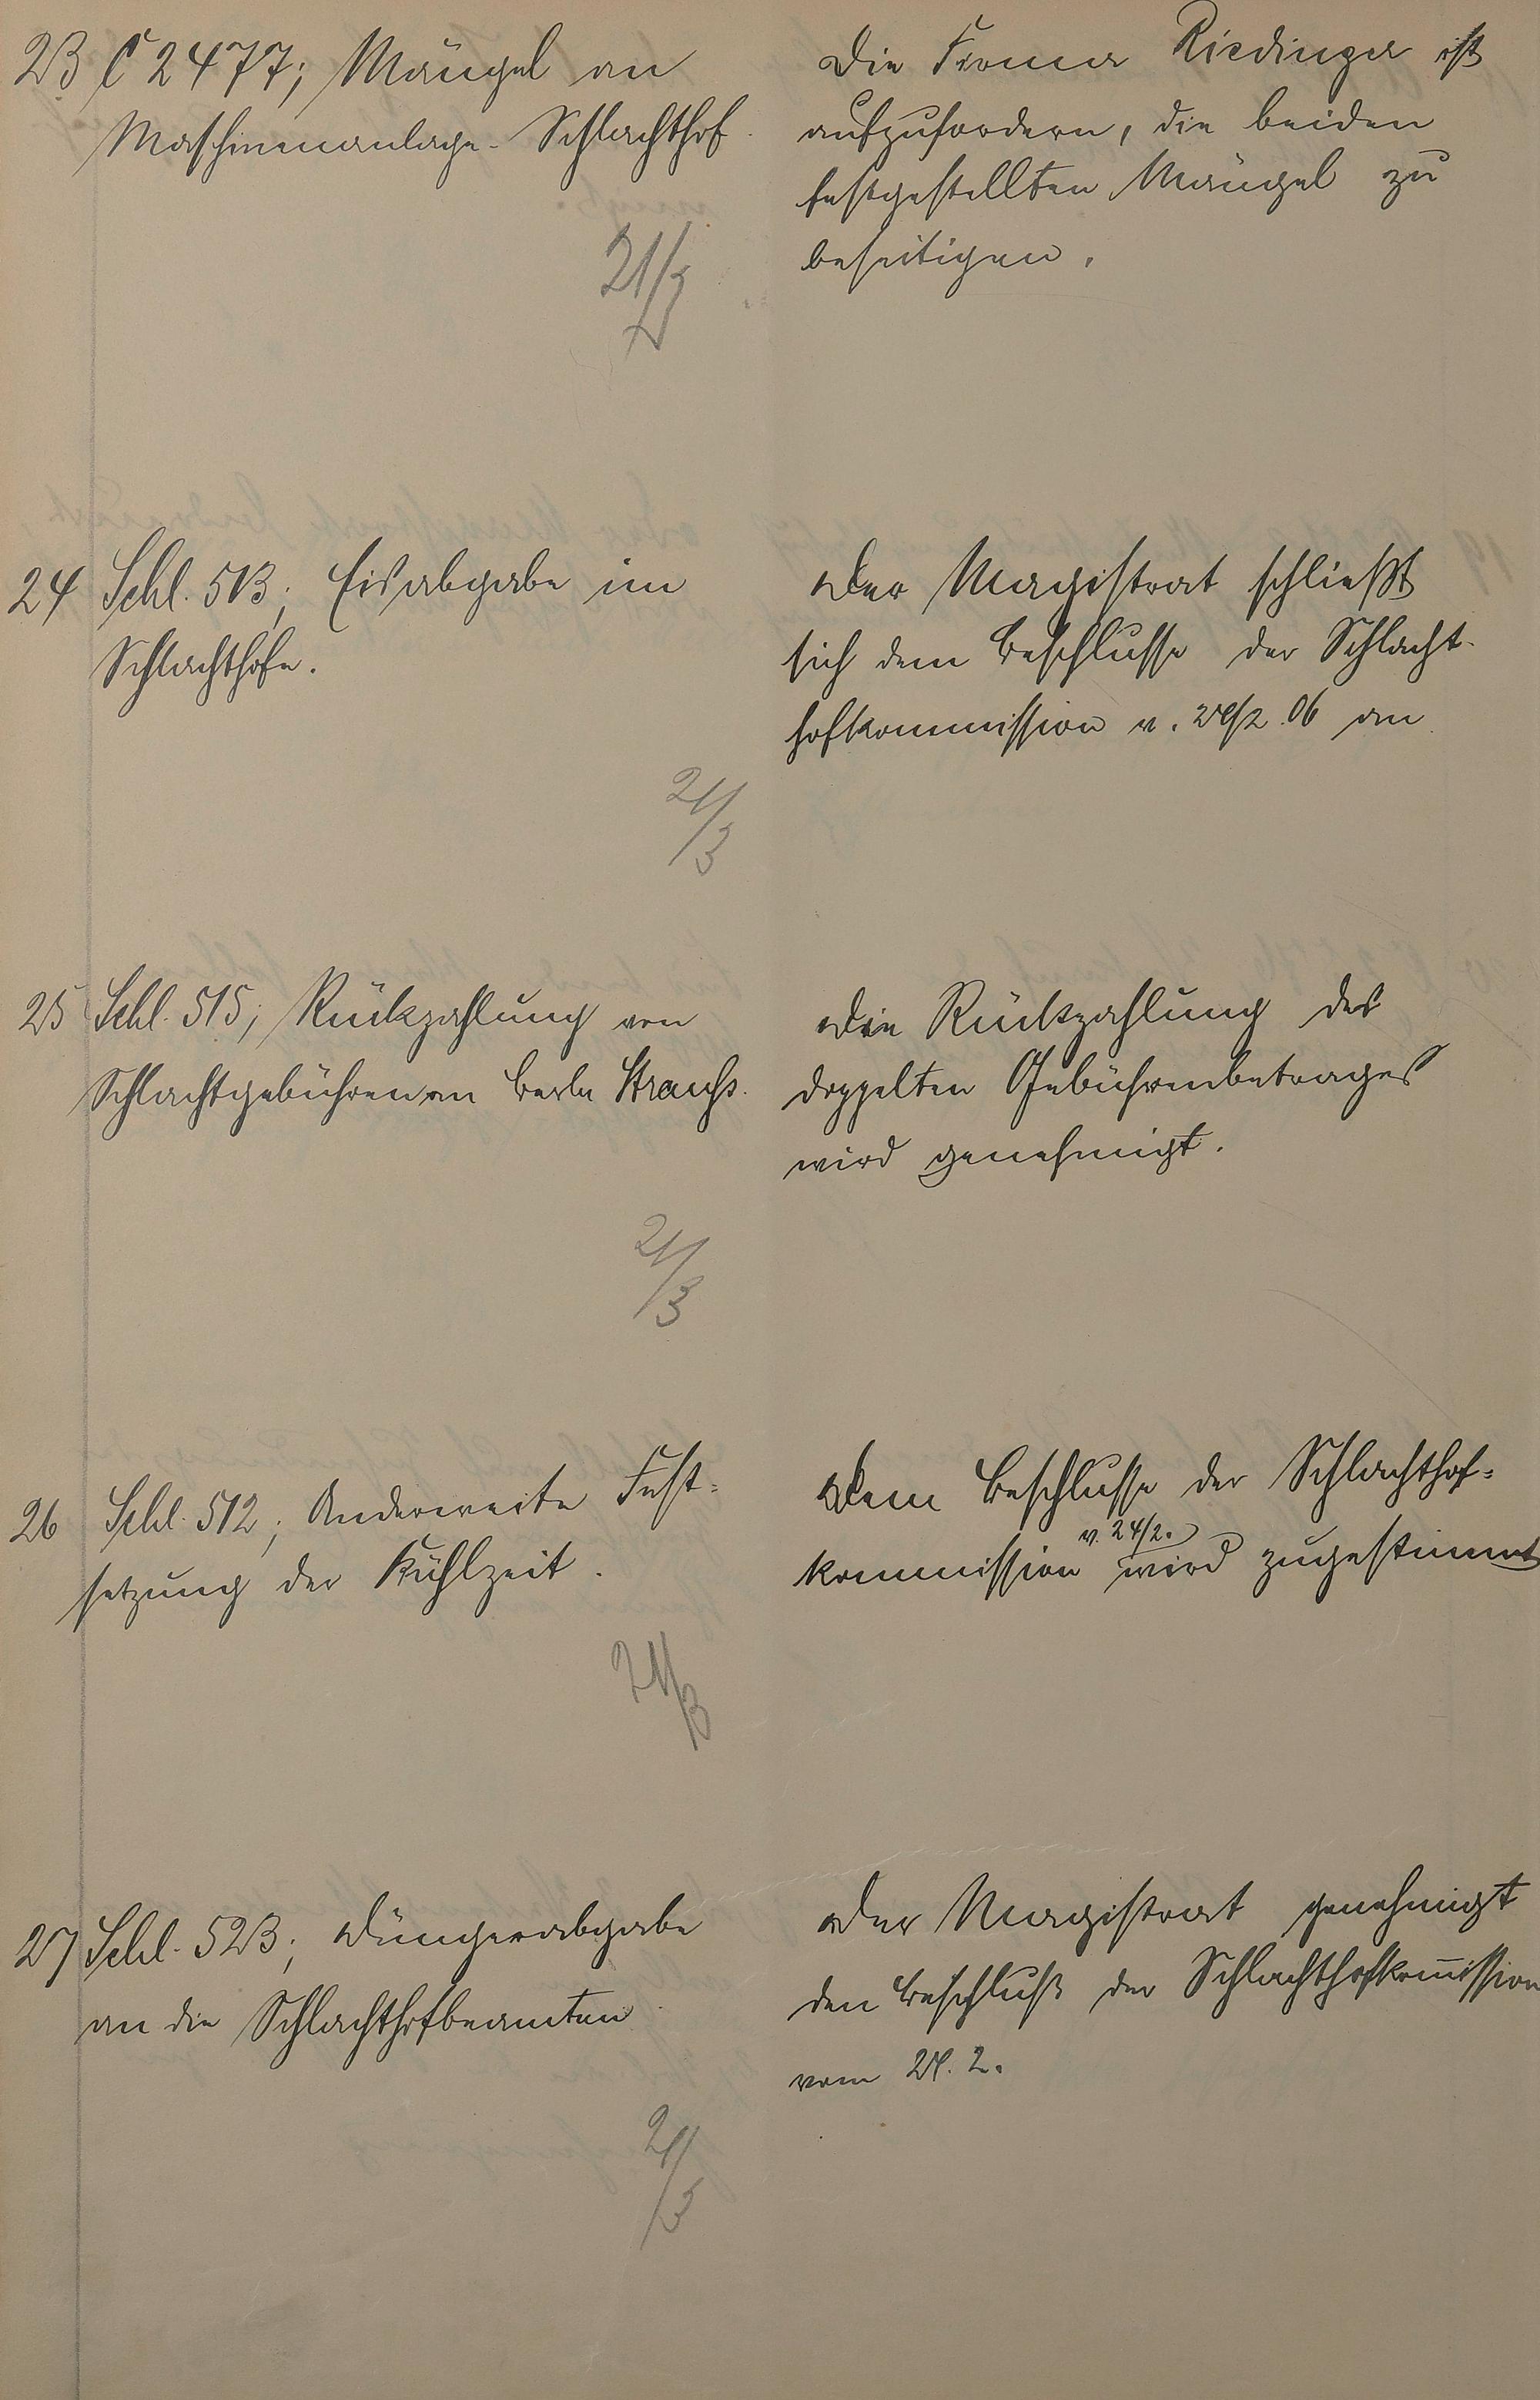 23 C 2477; Mängel an
Maschinenanlage-Schlachthof
21/3
Die Firma Riedinger ist
aufzufordern, die beiden
festgestellten Mängel zu
beseitigen.
24 Schl. 513; Eisabgabe im
Schlachthofe.
21/3
Der Magistrat schließt
sich dem Beschlusse der Schlacht-
hofkommission v. 24/2. 06 an
25 Schl. 515; Rückzahlung von
Schlachtgebühren an Berta Strauss.
21/3
Die Rückzahlung des
doppelten Gebührenbetrages
wird genehmigt.
26 Schl. 512; Anderweite Fest-
setzung der Kühlzeit.
21/3
Dem Beschlusse der Schlachthof-
kommission v. 24/2. wird zugestimmt
27 Schl. 523; Düngerabgabe
an die Schlachthofbeamten
21/3
Der Magistrat genehmigt
den Beschluß der Schlachthofkom̅ission
vom 24. 2.